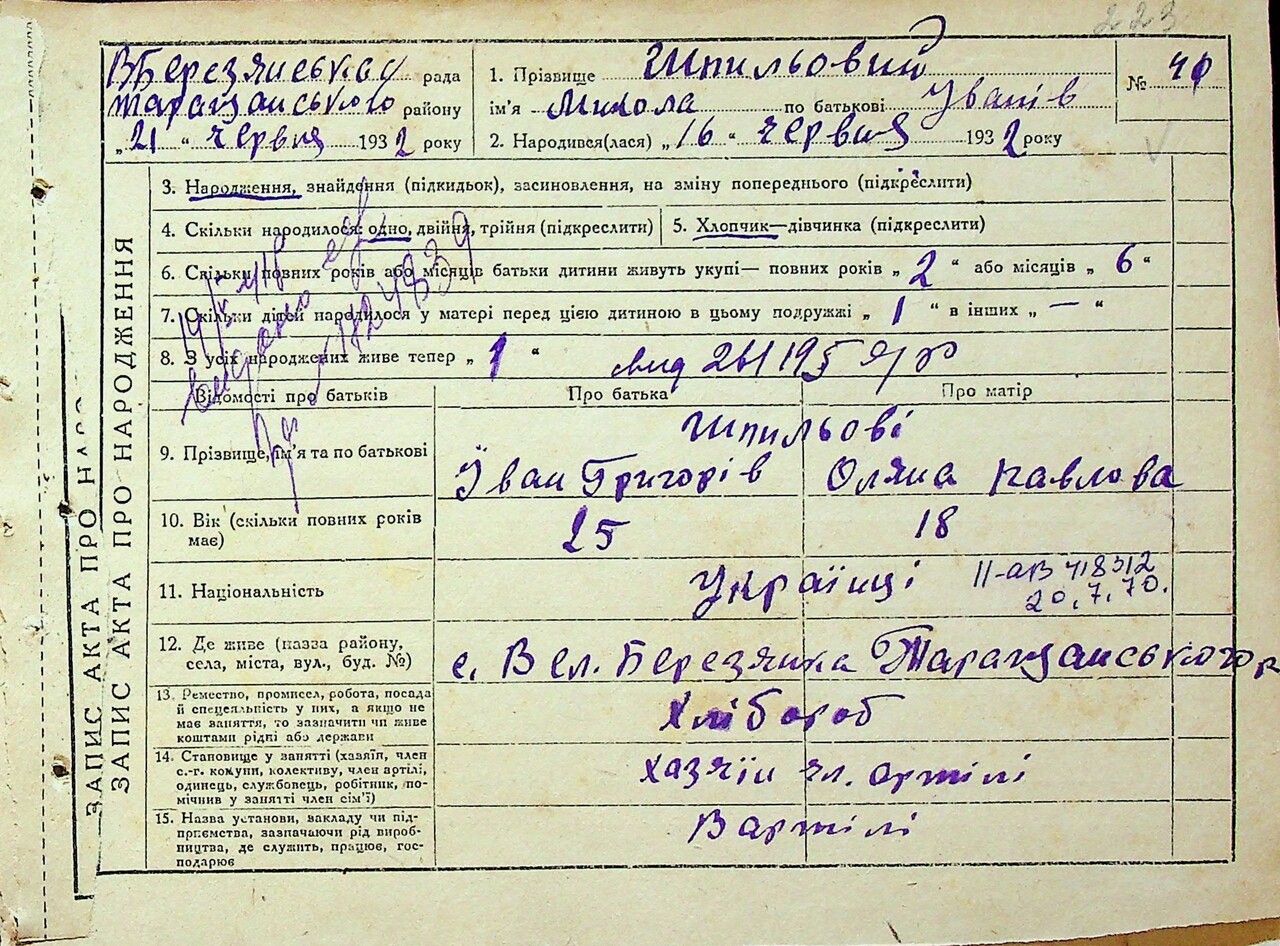 223
В Березянська рада
Таращанського району
„21“ червня 1932 року
1. Прізвище Шпильовий
ім'я Микола по батькові Іванів
2. Народився(лася) „16“ червня 1932 року
№ 40
ЗАПИС АКТА ПРО НАРОДЖЕННЯ
3. Народження, знайдення (підкидьок), засиновлення, на зміну попереднього (підкреслити)
4. Скільки народилося: одно, двійня, трійня (підкреслити) 5. Хлопчик—дівчинка (підкреслити)
6. Скільки повних років або місяців батьки дитини живуть укупі— повних років „2“ або місяців „6“
7. Скільки дітей народилося у матері перед цією дитиною в цьому подружжі „1“ в інших „—“
8. З усіх народжених живе тепер „1“
Відомості про батьків Про батька Про матір
Шпильові
9. Прізвище, ім'я та по батькові Їван Григорів Оляна Павлова
10. Вік (скільки повних років має) 25 18
11. Національність Українці
II-АВ 418312
20.7.70.
12. Де живе (назва району, села, міста, вул., буд. №) с. Вел. Березянка Таращанського р
13. Ремество, промисел, робота, посада
й спецеяльність у них, а якщо не
має заняття, то зазначити чи живе
коштами рідні або держави
Хлібороб
14. Становище у занятті (хазяїн, член
с.-г. комуни, колективу, член артілі,
одинець, службовець, робітник, по-
мічник у занятті член сім'ї)
хазяїн чл. артілі
15. Назва установи, закладу чи під-
приємства, зазначаючи рід вироб-
ництва, де служить, працює, гос-
подарює
В артілі
ЗАПИС АКТА ПРО